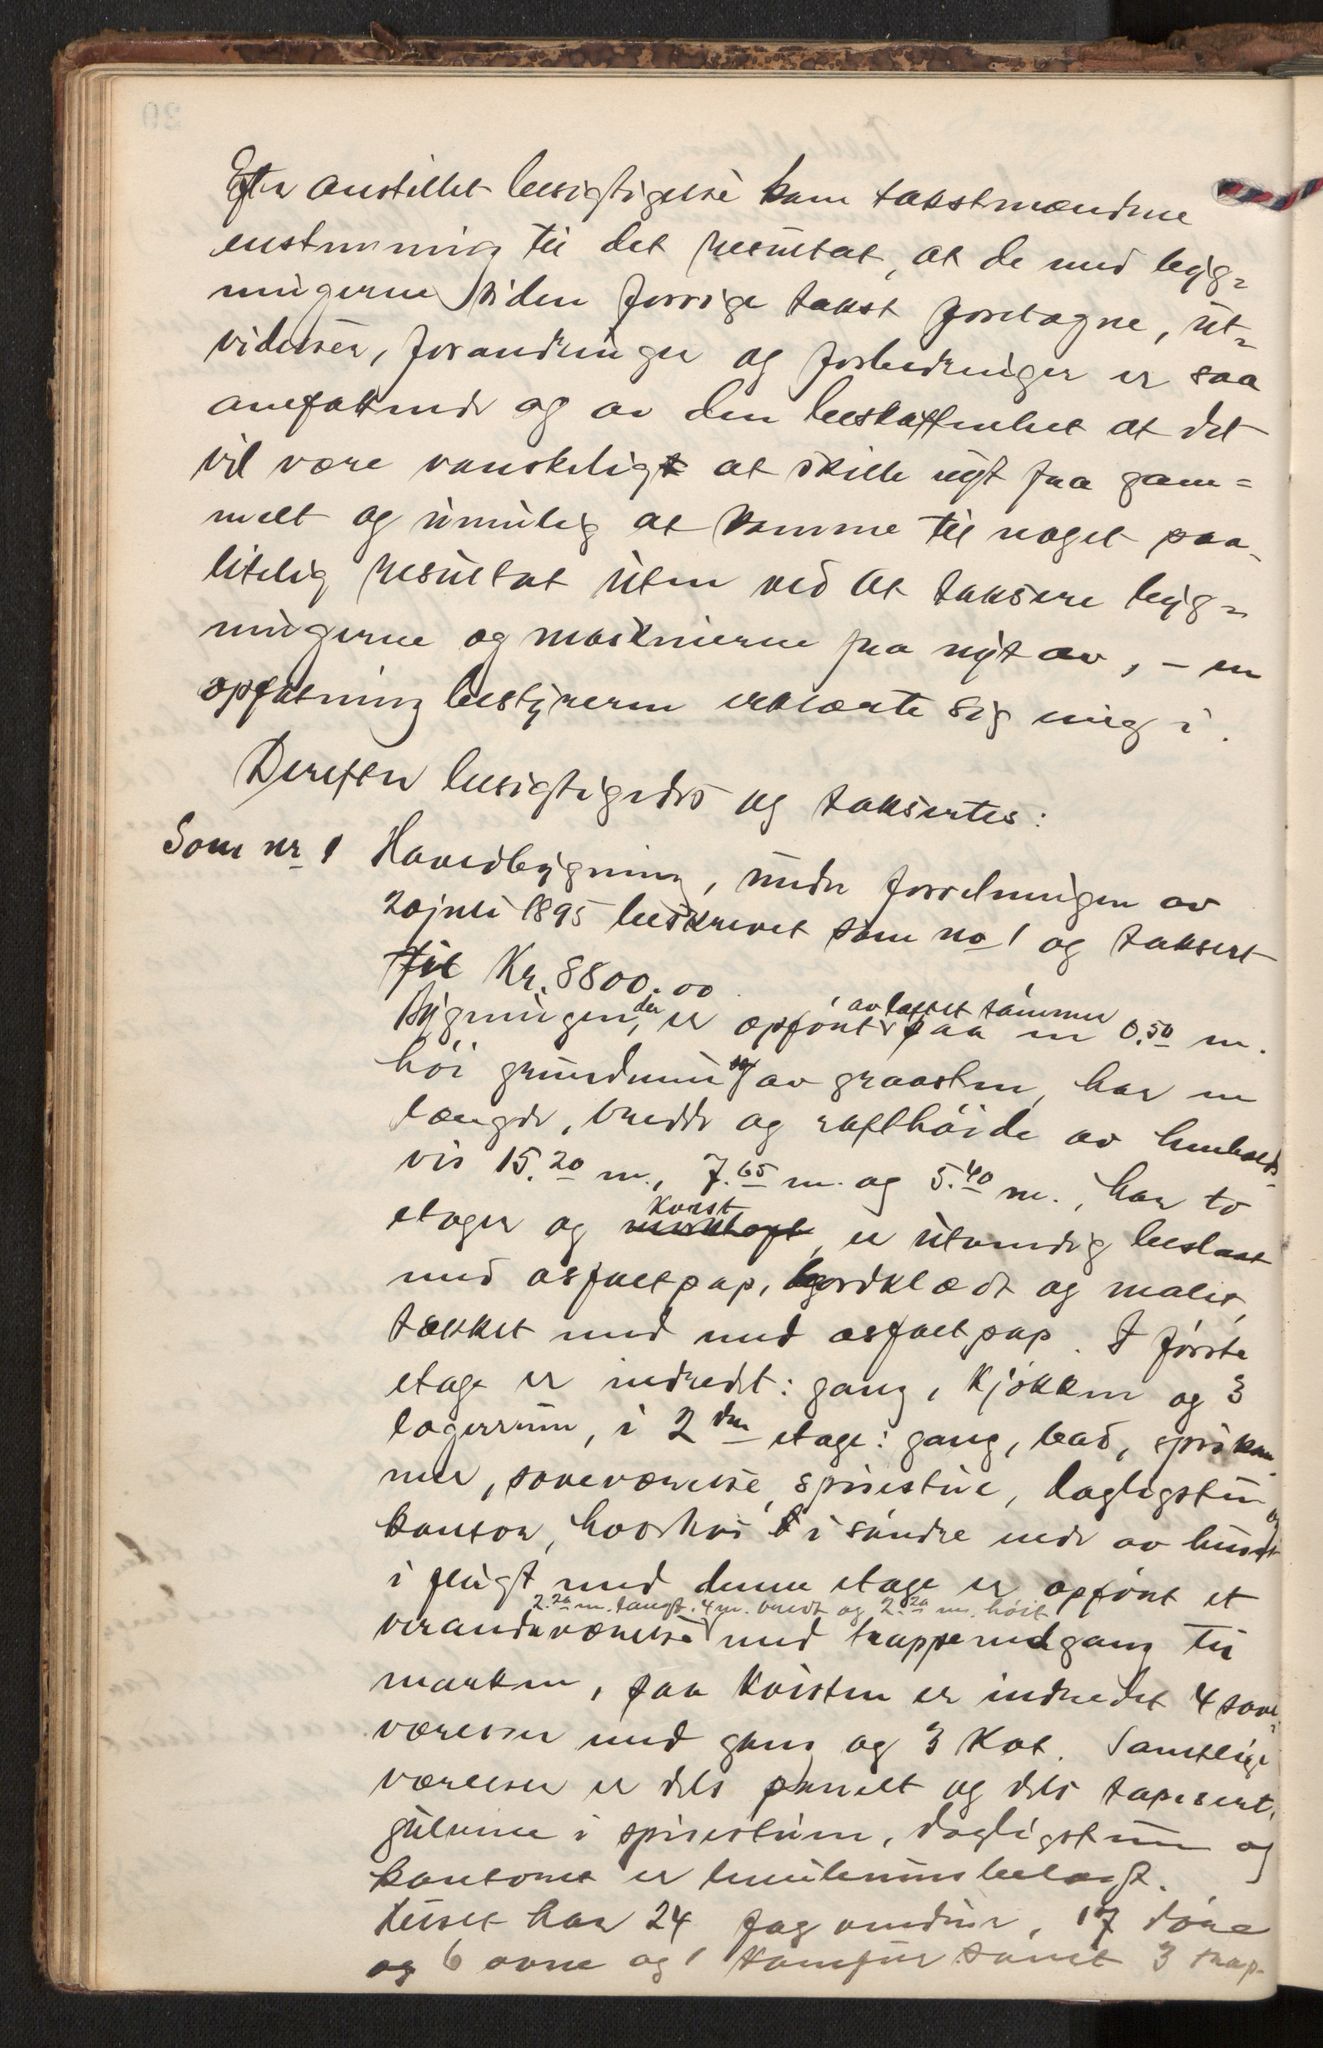 Efter anstillet besigtigelse kom takstmændene
enstemmig til det resultat, at de med byg=
ningerne siden forrige takst foretagne, ut=
videlser, forandringer og forbedringer er saa
omfattende og av den beskaffenhet at det
vil være vanskeligt at skille nyt fra gam=
melt og umulig at komme til noget paa-
litelig resultat uten ved at taksere byg=
ningerne og maskinerne fra nyt av, - en
opfatning bestyreren erklærte sig enig i.
Derefter besigtigedes og taksertes:
Som nr 1 Hovedbygning, under forretningen av
20 juli 1895 beskrevet som no 1 og taksert
til Kr. 8800.00
, av laftet tømmer
Bygningen, der er opført paa en 0.50 m.
høi grundmur av graasten, har en
længde, bredde og rafthøide av henholds-
vis 15.20 m., 7.65 m. og 5.40 m., har to
kvist
etager og mørkloft, er utvendig beslaat
med asfaltpap, bordklædt og malet,
tækket med med asfaltpap. I første
etage er indredet: gang, kjøkken og 3
lagerrum, i 2den etage: gang, bad, spiskam-
mer, soveværelse, spisestue, dagligstue og
kontor, hvorhos i søndre ende av huset
i flugt med denne etage er opført et
2.20 m. langt, 4 m. bredt og 2.20 m. høit
verandaværelse med trappenedgang til
marken, paa kvisten er indredet 4 sove-
værelser med gang og 3 kot. Samtlige
værelser er dels panelt og dels tapesert,
gulvene i spisestuen, dagligstuen og
kontoret er linoleumsbelagt.
Huset har 24 fag vinduer, 17 døre
og 6 ovne og 1 komfur samt 3 trap-